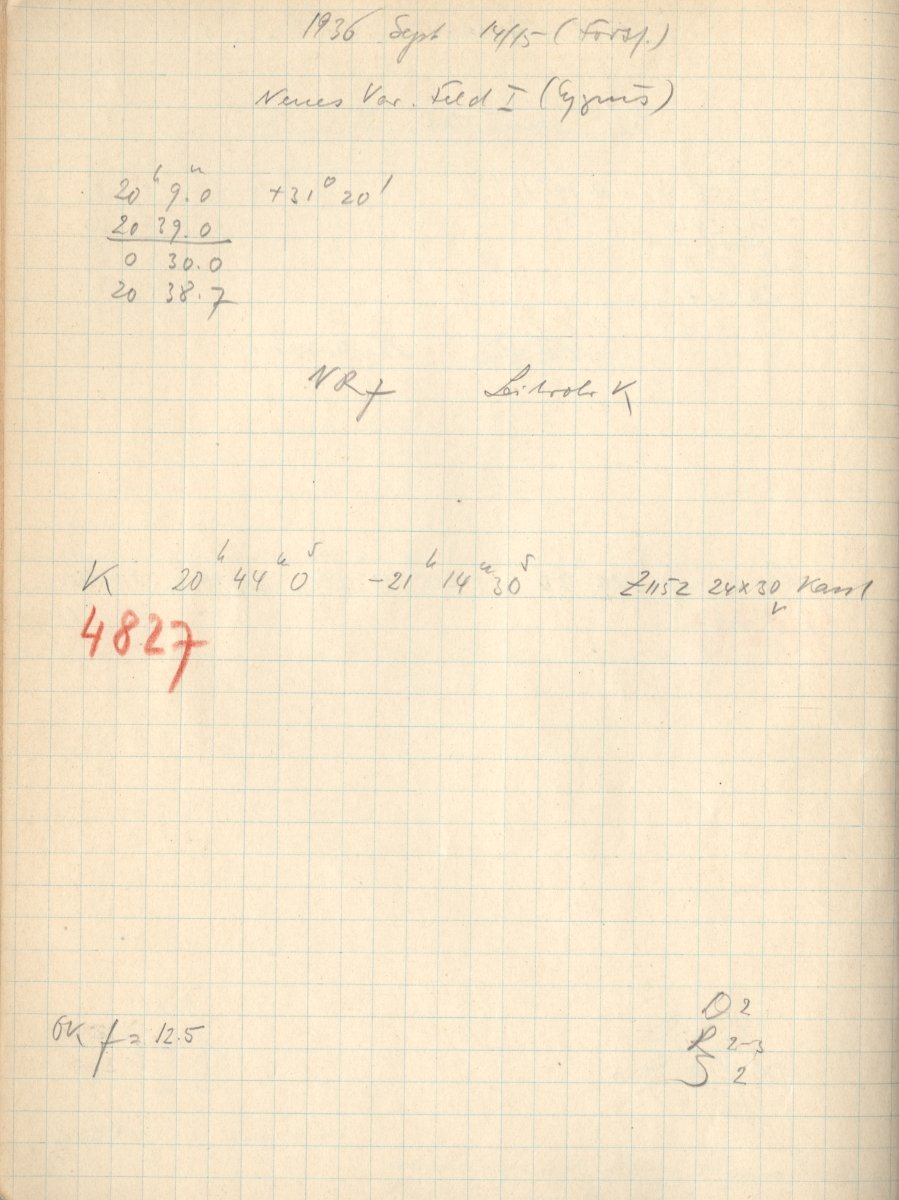 1936 Sept 14/15 (Forts.)
Neues Var. Feld I (Cygnus)
20ʰ 9.0ᵐ +31° 20'
20 39.0
0 30.0
20 38.7
NRf Leitrohr K
K 20ʰ 44ᵐ 0ˢ -21ʰ 14ᵐ 30ˢ Z1152 24x30
4827
GK f = 12.5
D 2
R 2-3
S 2